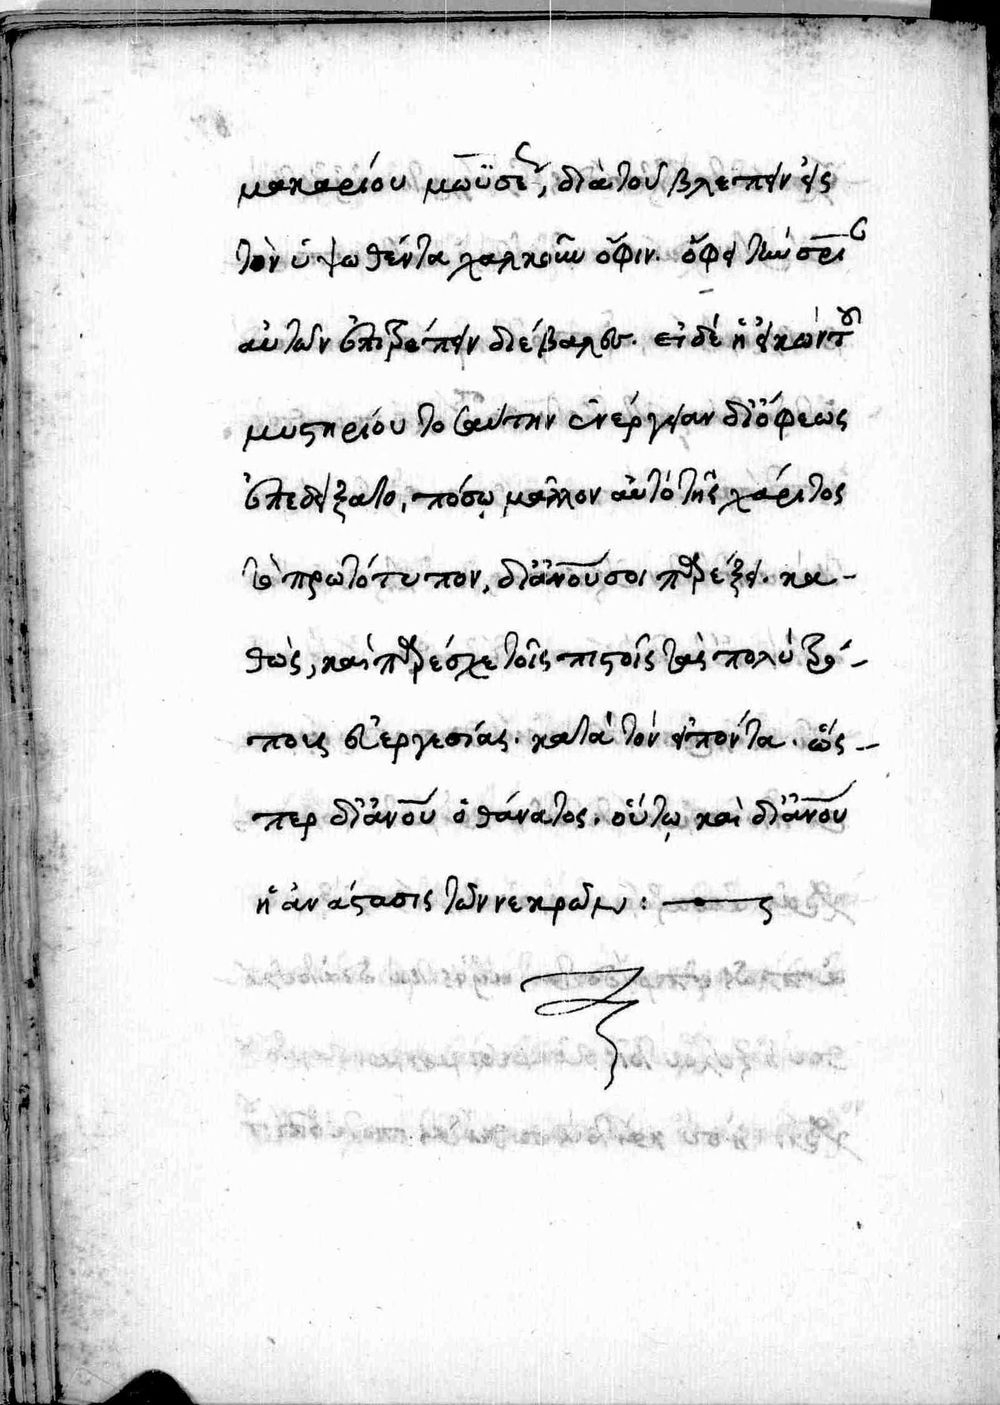 μακαρίου μωϋσέως, διὰ τοῦ βλέπειν εἰς
τὸν ὑψωθέντα χαλκοῦν ὄφιν. ὄφει τὴν
αὐτῶν ἐπιτρέπειν διέβαλεν. εἰ δὲ ἡ εἰκὼν τοῦ
μυστηρίου τοσαύτην ἐνέργειαν δι ὄφεως
ἐπεδείξατο, πόσω μᾶλλον αὐτὸ τῆς χάριτος
τὸ πρωτότυπον, διὰ νοῦ σοι παρέξει. κα-
θὼς, καὶ παρέσχε τοῖς πιστοῖς τὰς πολυτρό-
πους εὐεργεσίας. κατὰ τὸν εἰπόντα. ὥσ-
περ δι ἀνοῦ ὁ θάνατος. οὕτω καὶ δι ἀνοῦ
ἡ ἀνάστασις τῶν νεκρῶν :